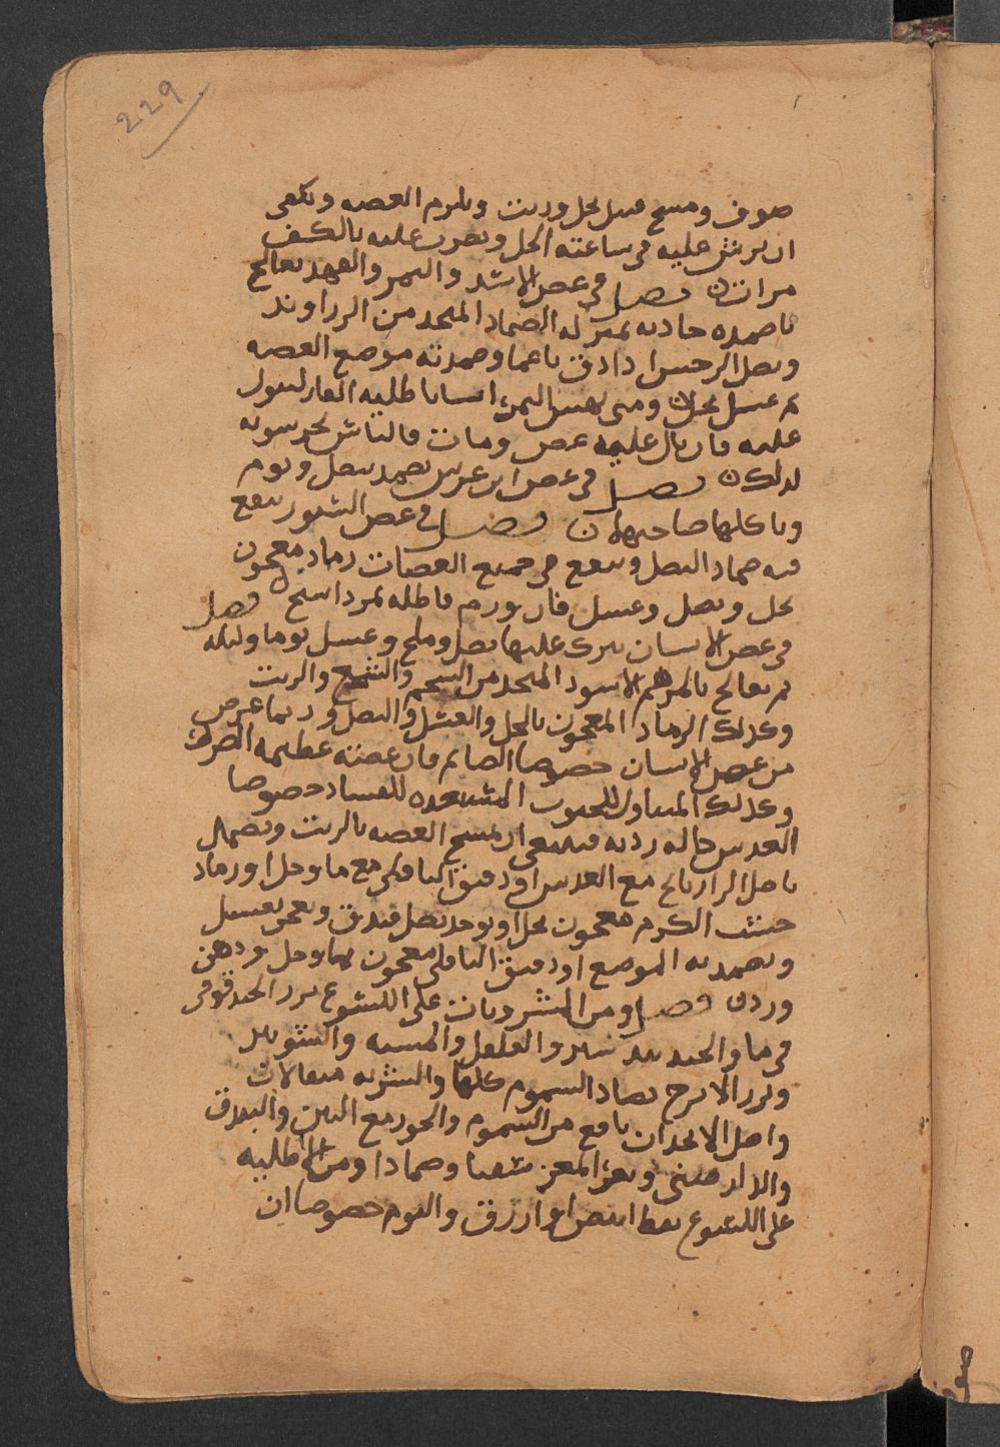 229
صوف ومسح مبل بخل وزيت ويلزم العضه ويكفى
ان يرش عليه فى ساعته الخل ويضرب عليه بالكف
مرات فصل فى عض الاسد والنمر والفهد يعالج
باضمده جاذبه بمنزله الضماد المتخذ من الزراوند
وبصل النرجس اذا دق ناعما وضمدته موضع العضه
ثم غسل بخل ومن نهش النمر انسانا طلبه الفار ليبول
عليه فان بال عليه عض ومات فالناس يحرسونه
لذلك فصل فى عض ابن عرس يضمد ببصل وثوم
وياكلها صاحبها فصل فى عض السنور ينفع
فيه ضماد البصل وينفع فى جميع العضات رماد معجون
بخل وبصل وعسل فان تورم فاطله بمرداسنج فصل
فى عض الانسان يترك عليها بصل وملح وعسل يوما وليله
ثم يعالج بالمرهم الاسود المتخذ من الشحم والشمع والزيت
وكذلك الرماد المعجون بالخل والعسل والبصل وربما عرض
من عض الانسان خصوصا الصائم فان عضته عظيمه الضرر
وكذلك المتناول للحبوب المستعده للفساد خصوصا
العدس حاله رديه فينبغى ان يمسح العضه بالزيت ويضمد
باصل الرازيانج مع العدس او دقيق الباقلى مع ما وخل او رماد
خشب الكرم معجون بخل او يوخذ بصل فيدق ويعجن بعسل
ويضمد به الموضع او دقيق الباقلى معجون بما وخل ودهن
ورد فصل ومن المشروبات على اللسوع بزر الحندقوقى
فى ما والجند بيد ستر والفلفل والميبه والشونيز
وبزر الاترج يضاد السموم كلها والشربه مثقالان
واصل الانجدان نافع من السموم والجوز مع التين والبندق
والدار صينى وبعر المعز سقيا وضمادا ومن الاطليه
على اللسوع نفط ابيض او ازرق والثوم خصوصا ان